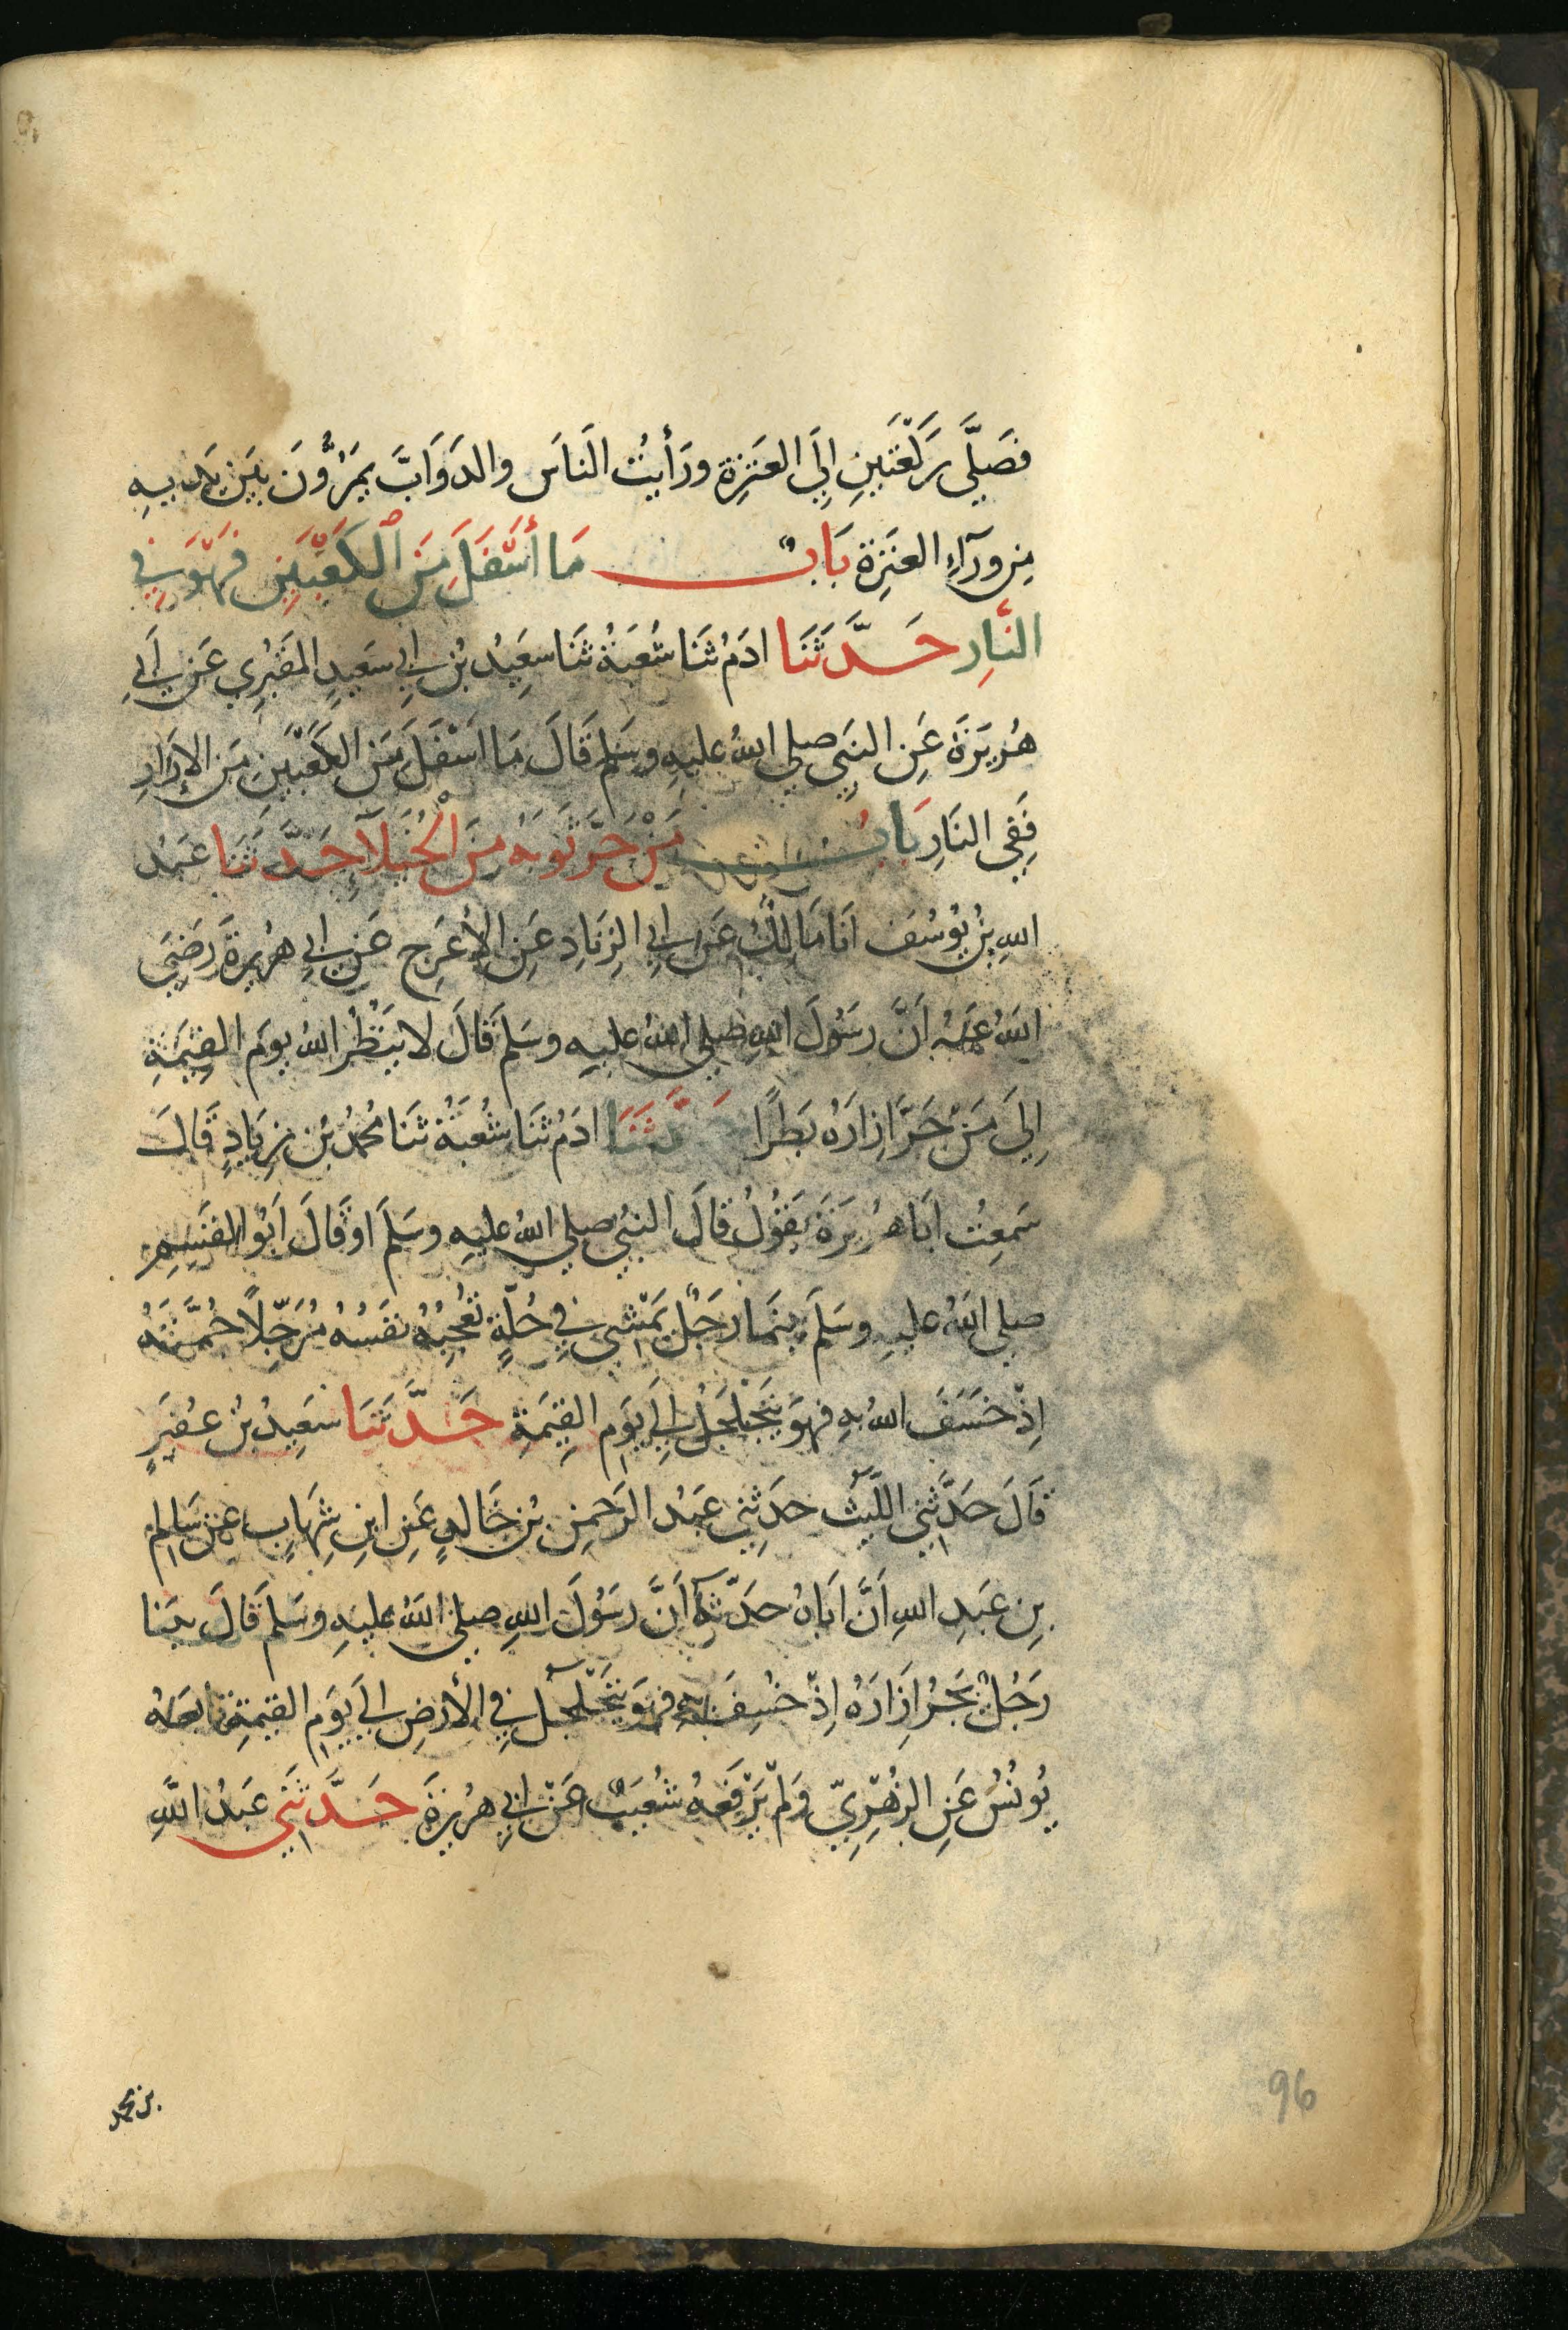 فَصَلَّى رَكْعَتَيْنِ اِلَى العَنَزَةِ ورَأيْتُ النَاسَ والدَوَابَّ يَمُرُّونَ بَيْنَ يَدَيهِ
مِن ورَآءِ العَنَزِة بَابٌ مَا أسْفَلَ مِنَ الكَعْبَيْنِ فَهْوَ فِي
النَّارِ حَدَّثَنَا ادَمُ ثَنَا شُعْبَةُ ثَنَا سعِيْدُ بْنُ ابِي سَعِيدٍ المَقْبُرِي عَنْ اَبِي
هُرَيرَةَ عَنِ النَبِي صلى اللهُ عليهِ وسَلم قَالَ مَا اسْفَلَ مِنَ الكَعْبَيْنِ مَن الاِزَارِ
فَفِي النَارِ بَابُ مَنْ جَرَّ ثَوْبَهُ مِنَ الْخُيَلاَءِ حَدَّثَنَا عَبْدُ
اللهِ بْنُ يُوْسُفَ اَنَا مَالِكٌ عَن ابِي الزِنَادِ عَنِ الأعْرَجِ عَنْ ابِي هُرَيرَةَ رَضِيَ
اللهُ عَنْهُ اَنَّ رسَوُلَ اللهِ صلى اللهُ عليهِ وسَلمَ قَالَ لا يَنْظُرُ اللهُ يومَ القِيٰمَةِ
اِلَى مَنْ جَرَّ اِزارَهُ بَطَرًا حَدَّثَنَا ادَمُ ثنَا شُعْبَةُ ثنَا مُحمَدُ بْن زِيَادٍ قَالَ
سَمِعْتُ اَبَا هُرَيرَةَ يَقُوْلُ قَالَ النبيُ صلى اللهُ عليهِ وسَلمَ اوْ قَالَ اَبُو القٰسِمِ
صلى اللهُ عليهِ وسَلَمَ بينَمَا رَجُلٌ يَمْشِي فِي حُلَّةٍ تُعْجِبُهُ نَفْسُهُ مُرَجِّلًا جُمَّتَهُ
اِذْ خَسَفَ اللهُ بهِ فهوَ يَتَجَلْجَلُ اِلَى يَوْمِ القِيٰمَةِ حَدَّثَنَا سَعِيدُ بْنُ عُفَيرٍ
قَالَ حَدَّثَنِي اللَيْثُ حدَثِنِي عَبْدُ الرَحمنِ بْن خَالدٍ عَن ابنِ شِهَابٍ عن سَالِم
بنِ عَبدِ اللهِ اَنَّ اَبَاهُ حدَّثهُ اَنَّ رسَوُلَ اللهِ صلى اللهُ عليهِ وسَلمَ قَالَ بَيْنا
رَجُلٌ يَجُرُ اِزَارَهُ اِذْ خُسِفَ بهِ فهوَ يَتَجَلْجَلُ فِي الأرْضِ الَى يَوْمِ القيٰمَةِ تابَعَهُ
يُونُسُ عَنِ الزُهْرِيّ وَلمْ يَرْفَعْهُ شُعَيْبٌ عَنْ اَبِي هرَيرَةَ حَدَّثَنِي عَبْدُ اللَّهِ
بن محمد
96